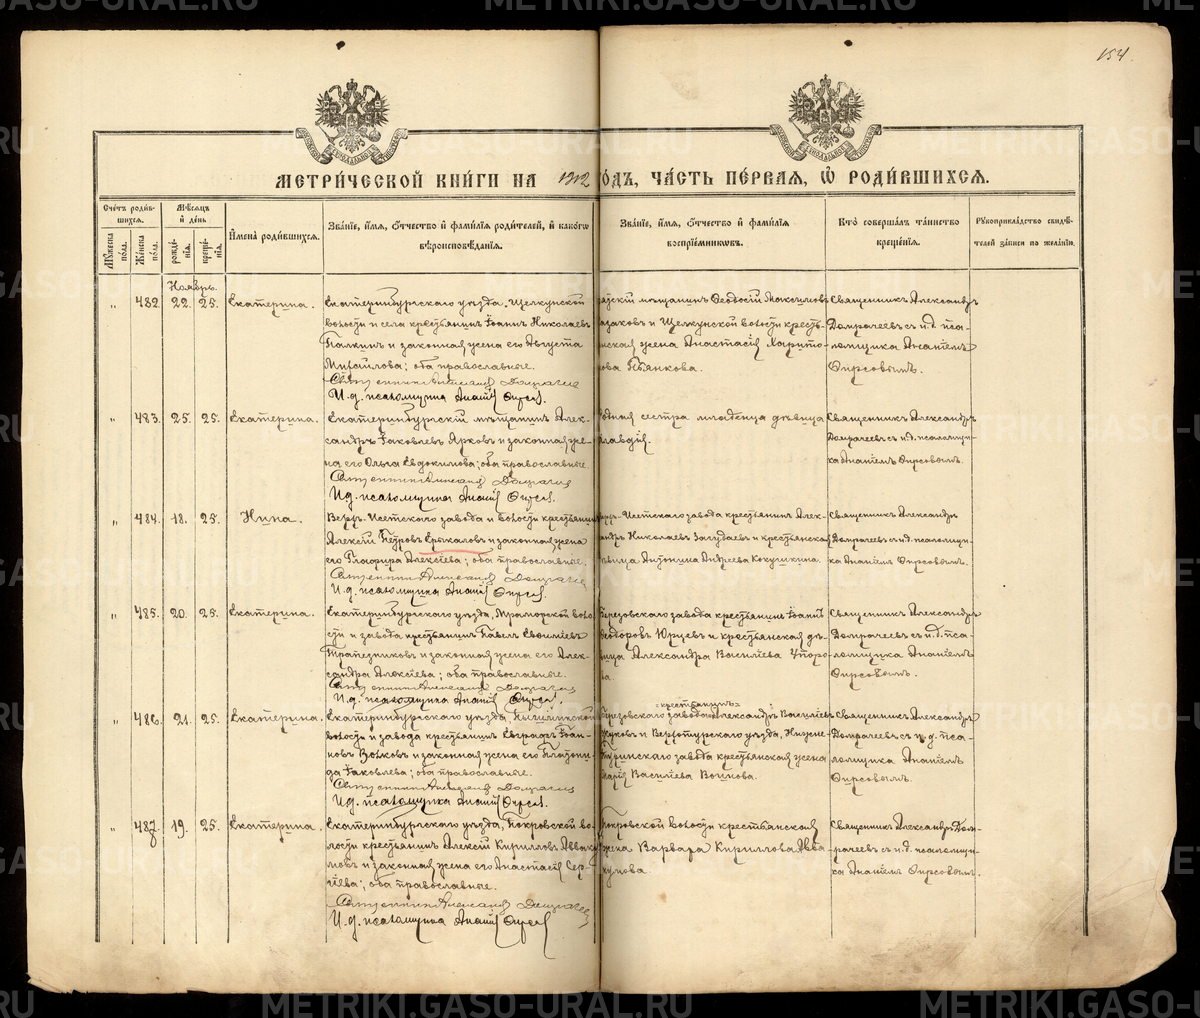 154.
МЕТРИ́ЧЕСКОЙ КНИ́ГИ НА 1912 ГО́ДЪ, ЧА́СТЬ ПЕ́РВАЯ, Ѡ РОДИ́ВШИХСЯ.
Сче́тъ роди́вшихся.
Мꙋ́жеска по́ла.
Же́нска по́ла.
Мѣ́сяцъ и҆ де́нь
рожде́нія.
креще́нія.
И҆мена̀ роди́вшихся.
Зва́ніе, и҆́мя, ѻ҆́тчество и҆ фами́лія роди́телей, и҆ како́гѡ вѣроисповѣ́данія.
Зва́ніе, и҆́мя, ѻ҆́тчество и҆ фами́лія воспріе́мниковъ.
Кто̀ соверша́лъ та́инство креще́нія.
Рꙋкоприкла́дство свидѣ́телей за́писи по жела́нію.
Ноябрь.
" 482. 22. 25. Екатерина.
Екатеринбургскаго уѣзда, Щелкунской
волости и села крестьянинъ Іоаннъ Николаевъ
Палкинъ и законная жена его Августа
Михаилова; оба православные.
Священникъ Александръ Домрачевъ
И. д. псаломщика Ананій Фирсовъ.
мѣщанинъ Ѳеодосій Максимовъ
и Щелкунской волости кресть-
жена Анастасія Харито-
Пьянкова.
Священникъ Александръ
Домрачеевъ съ и. д. пса-
ломщика Ананіемъ
Фирсовымъ.
" 483. 25. 25. Екатерина.
Екатеринбургскій мѣщанинъ Алек-
сандръ Іаковлевъ Ярковъ и законная же-
на его Ольга Евдокимова; оба православные.
Священникъ Александръ Домрачевъ
И. д. псаломщика Ананій Фирсовъ.
сестра младенца дѣвица
Клавдія.
Священникъ Александръ
Домрачеевъ съ и. д. псаломщи-
ка Ананіемъ Фирсовымъ.
" 484. 18. 25. Нина.
Верхъ-Исетскаго завода и волости крестьянинъ
Алексій Петровъ Ерыкаловъ и законная жена
его Глафира Алексіева; оба православные.
Священникъ Александръ Домрачевъ
И. д. псаломщика Ананій Фирсовъ.
Верхъ-Исетскаго завода крестьянинъ Алек-
сандръ Николаевъ и крестьянская
дѣвица Антонина Андреева Кокушкина.
Священникъ Александръ
Домрачеевъ съ и. д. псаломщи-
ка Ананіемъ Фирсовымъ.
" 485. 20. 25. Екатерина.
Екатеринбургскаго уѣзда, Мраморской воло-
сти и завода крестьянинъ Павелъ Евѳиміевъ
Трапезниковъ и законная жена его Алек-
сандра Алексіева; оба православные.
Священникъ Александръ Домрачевъ
И. д. псаломщика Ананій Фирсовъ.
Березовскаго завода крестьянинъ Іоаннъ
Ѳеодоровъ Юрцевъ и крестьянская дѣ-
вица Александра Василіева Упоро-
ва.
Священникъ Александръ
Домрачеевъ съ и. д. пса-
ломщика Ананіемъ
Фирсовымъ.
" 486. 21. 25. Екатерина.
Екатеринбургскаго уѣзда, Пышминской
волости и завода крестьянинъ Евграфъ Іоан-
новъ Волковъ и законная жена его Платони-
да Іаковлева; оба православные.
Священникъ Александръ Домрачевъ
И. д. псаломщика Ананій Фирсовъ.
крестьянинъ
Березовскаго завода Александръ Василіевъ
и Верхотурскаго уѣзда, Нижне-
Туринскаго завода крестьянская жена
Марія Василіева Волкова.
Священникъ Александръ
Домрачеевъ съ и. д. пса-
ломщика Ананіемъ
Фирсовымъ.
" 487. 19. 25. Екатерина.
Екатеринбургскаго уѣзда, Покровской во-
лости крестьянинъ Алексій Кирилловъ Авваку-
мовъ и законная жена его Анастасія Сер-
гіева; оба православные.
Священникъ Александръ Домрачеевъ
И. д. псаломщика Ананій Фирсовъ
Покровской волости крестьянская
жена Варвара Кириллова Авва-
кумова.
Священникъ Александръ Дом-
рачеевъ съ и. д. псаломщи-
ка Ананіемъ Фирсовымъ.
METRIKI.GASO-URAL.RU